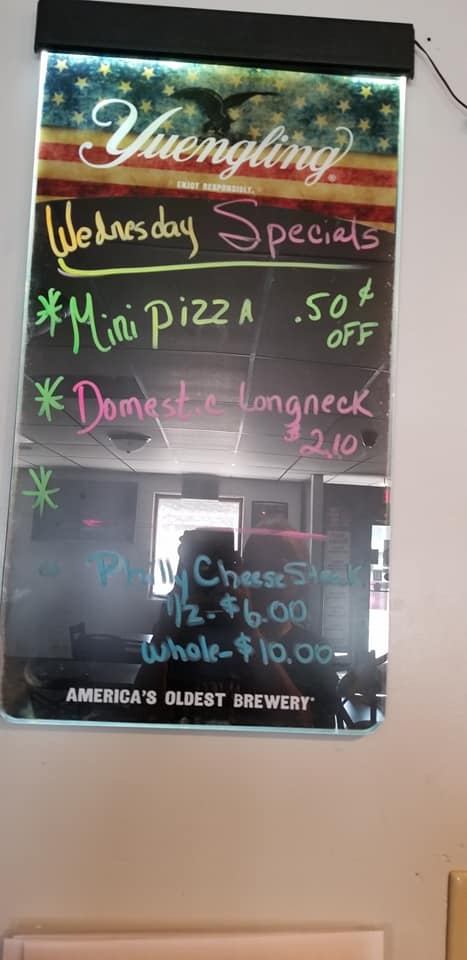 Yuengling®
ENJOY RESPONSIBLY.
Wednesday Specials
*Mini Pizza .50¢
OFF
* Domestic Longneck
$2.10
*
Philly Cheese Steak
1/2-$6.00
whole-$10.00
AMERICA'S OLDEST BREWERY®